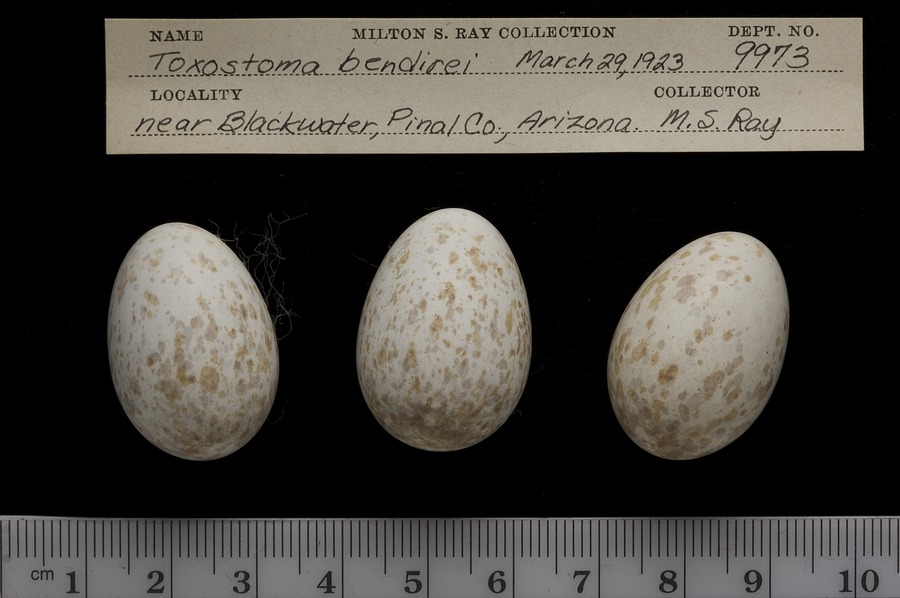 NAME MILTON S. RAY COLLECTION DEPT. NO.
Toxostoma bendirei March 29, 1923 9973
LOCALITY COLLECTOR
near Blackwater, Pinal Co., Arizona. M.S. Ray
cm 1 2 3 4 5 6 7 8 9 10